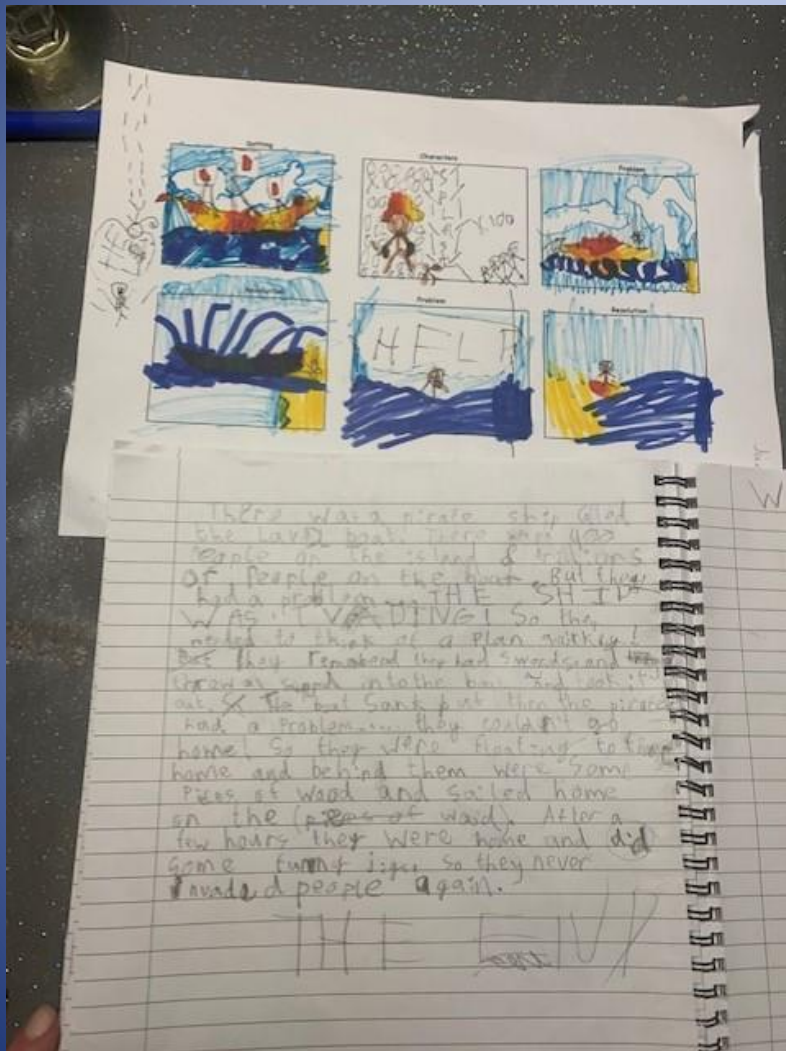 Setting
Characters
Problem
Problem
Resolution
x100
HELP
W
There was a pirate ship called
the boat. There 400
People on the island &
of People on the boat. But they
had a problem THE SHIP
WAS INVADING! So they
needed to think of a Plan
But they they had swords and
threw a sword into the boat and took it
out. The boat sank but then the pirates
had a Problem.... they couldn't go
home! So they were floating to
home and behind them were Some
Pices of wood and sailed home
on the (pieces of wood). After a
few hours they were home and did
some funny jigs. So they never
Invaded people again.
THE END